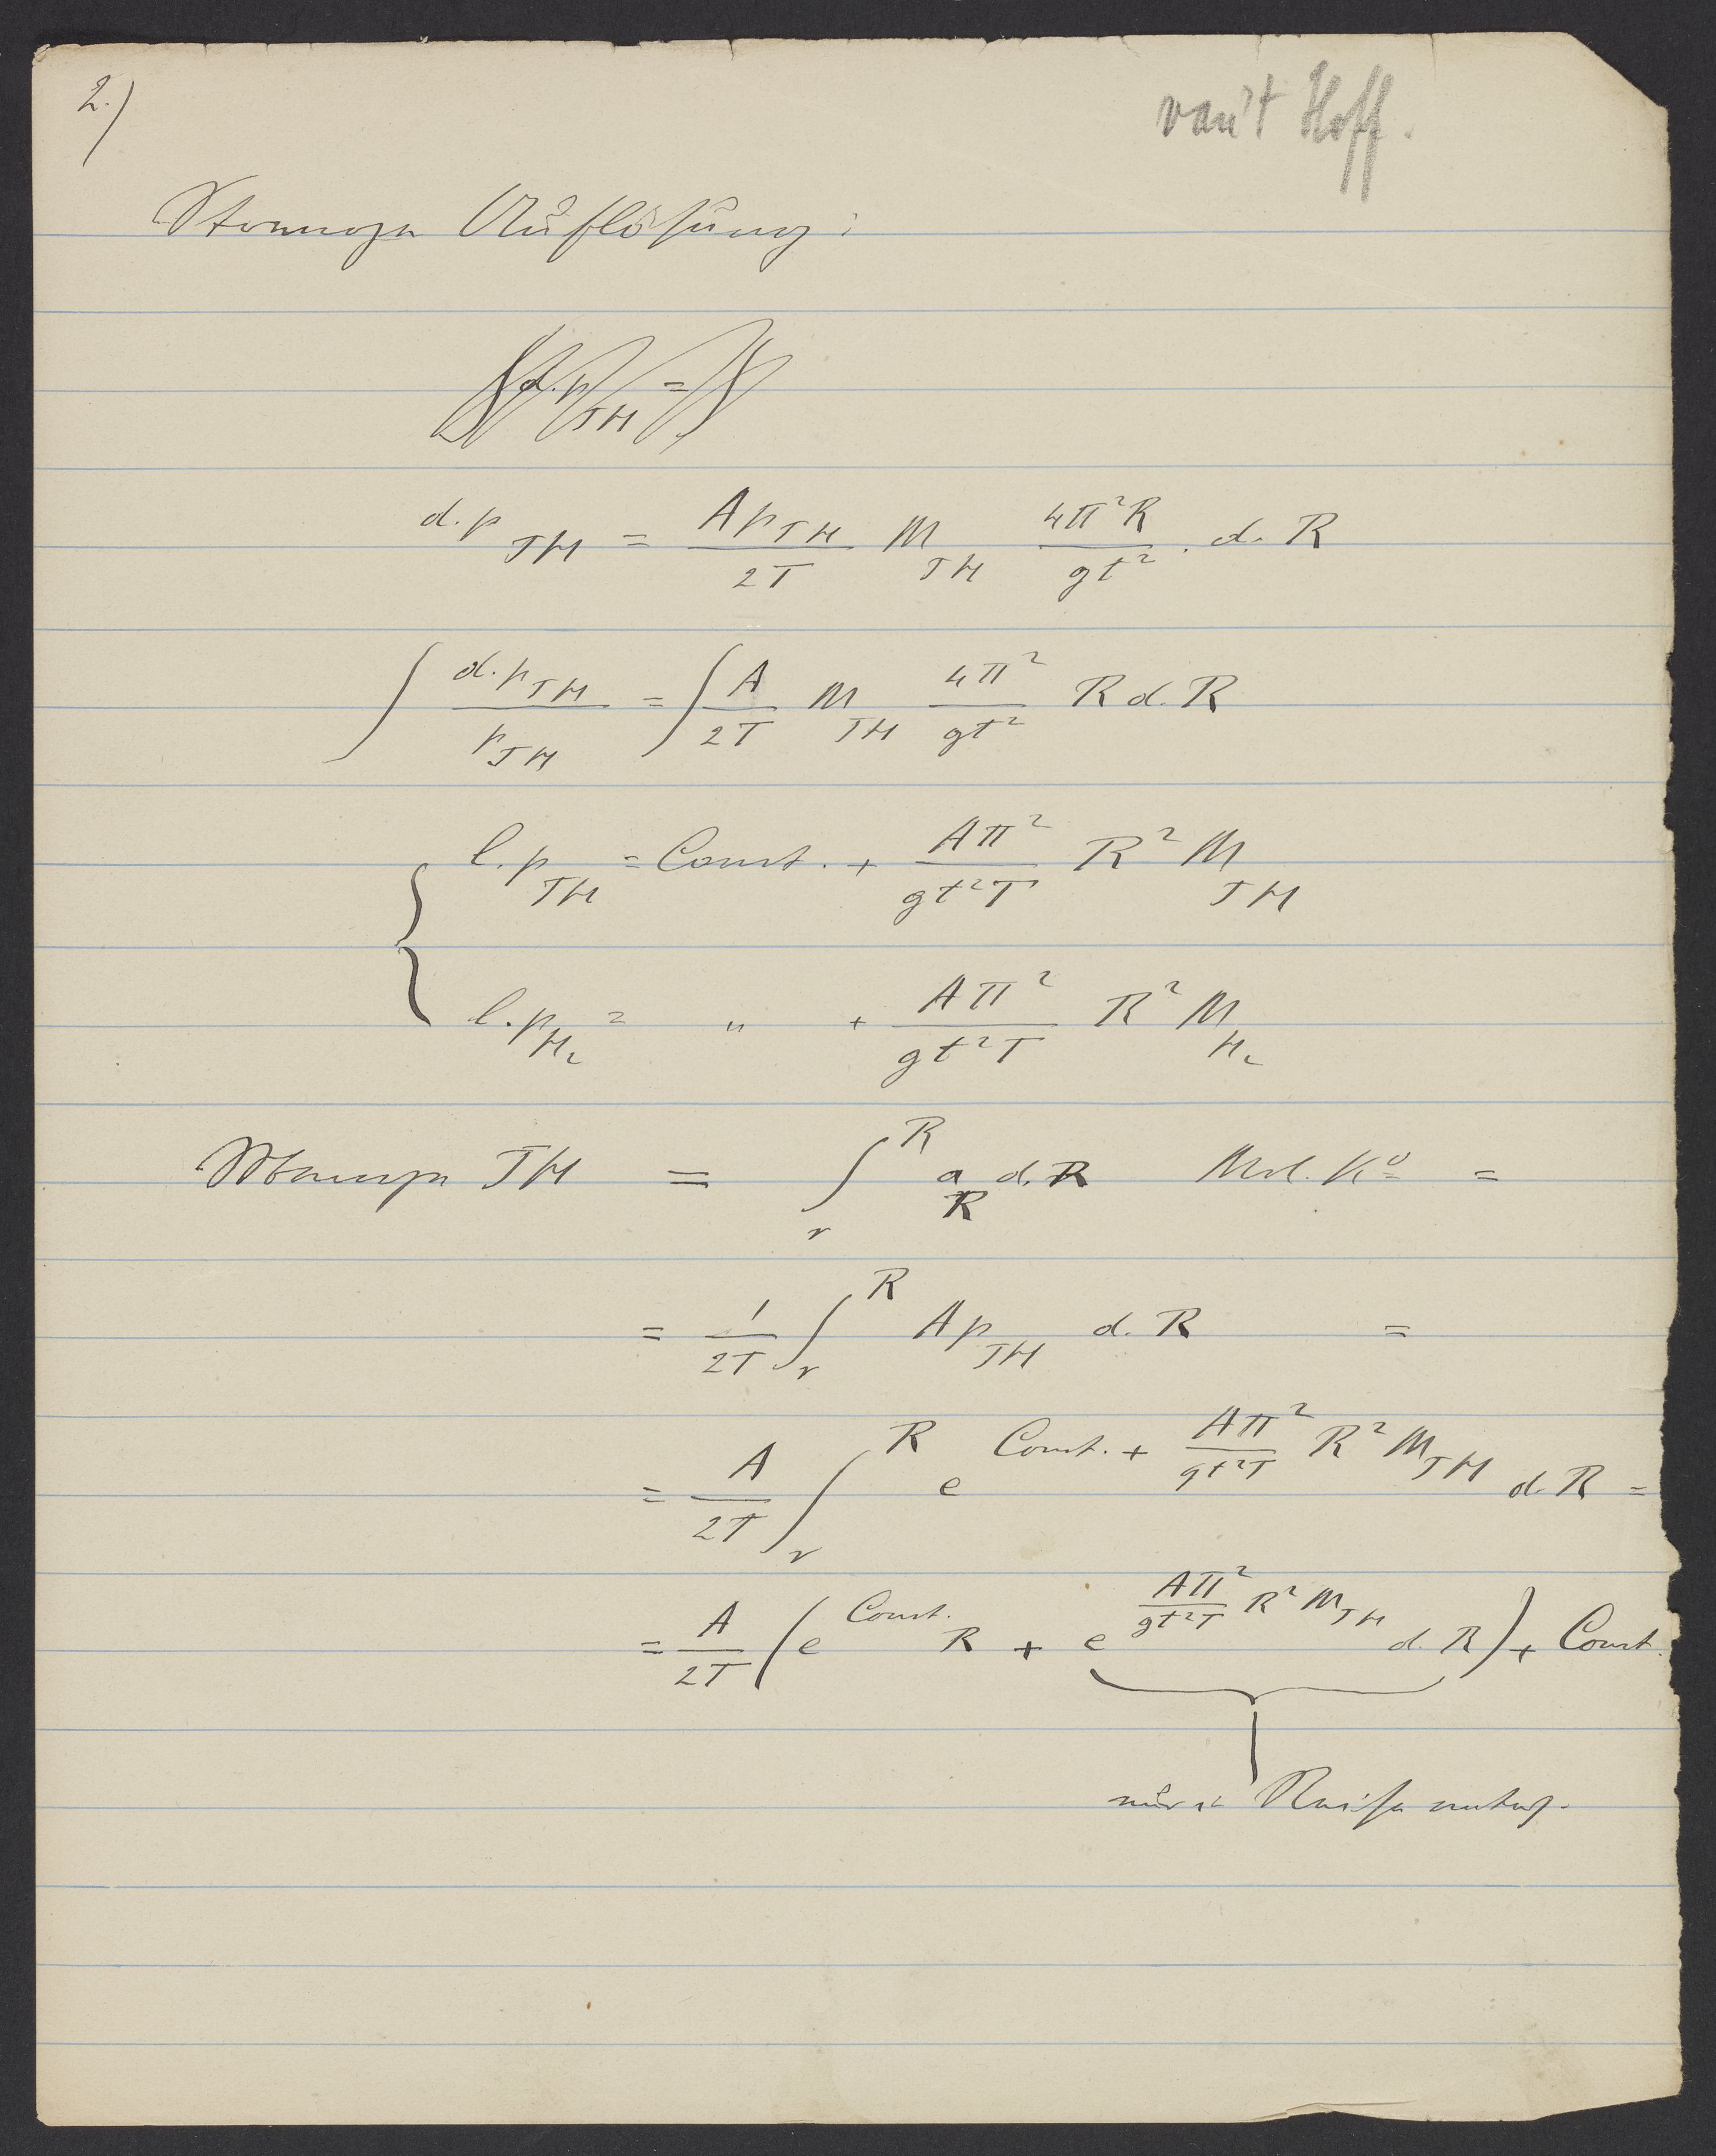 2.)
van't Hoff.
Strenge Auflösung:
∫ d.p_JH = ∫
d.p_JH = (A p_JH / 2T) M_JH (4π²R / gt²) . d.R
∫ d.p_JH / p_JH = ∫ (A / 2T) M_JH (4π² / gt²) R d.R
l.p_JH = Const. + (Aπ² / gt²T) R² M_JH
l.p_H₂ = " + (Aπ² / gt²T) R² M_H₂
Menge JH = ∫_r^R a_R d.R Mol. K° =
= (1 / 2T) ∫_r^R A p_JH d.R =
= (A / 2T) ∫_r^R e^(Const. + (Aπ² / gt²T) R² M_JH) d.R =
= (A / 2T) (e^(Const.) R + e^((Aπ² / gt²T) R² M_JH) d.R) + Const.
Reihe